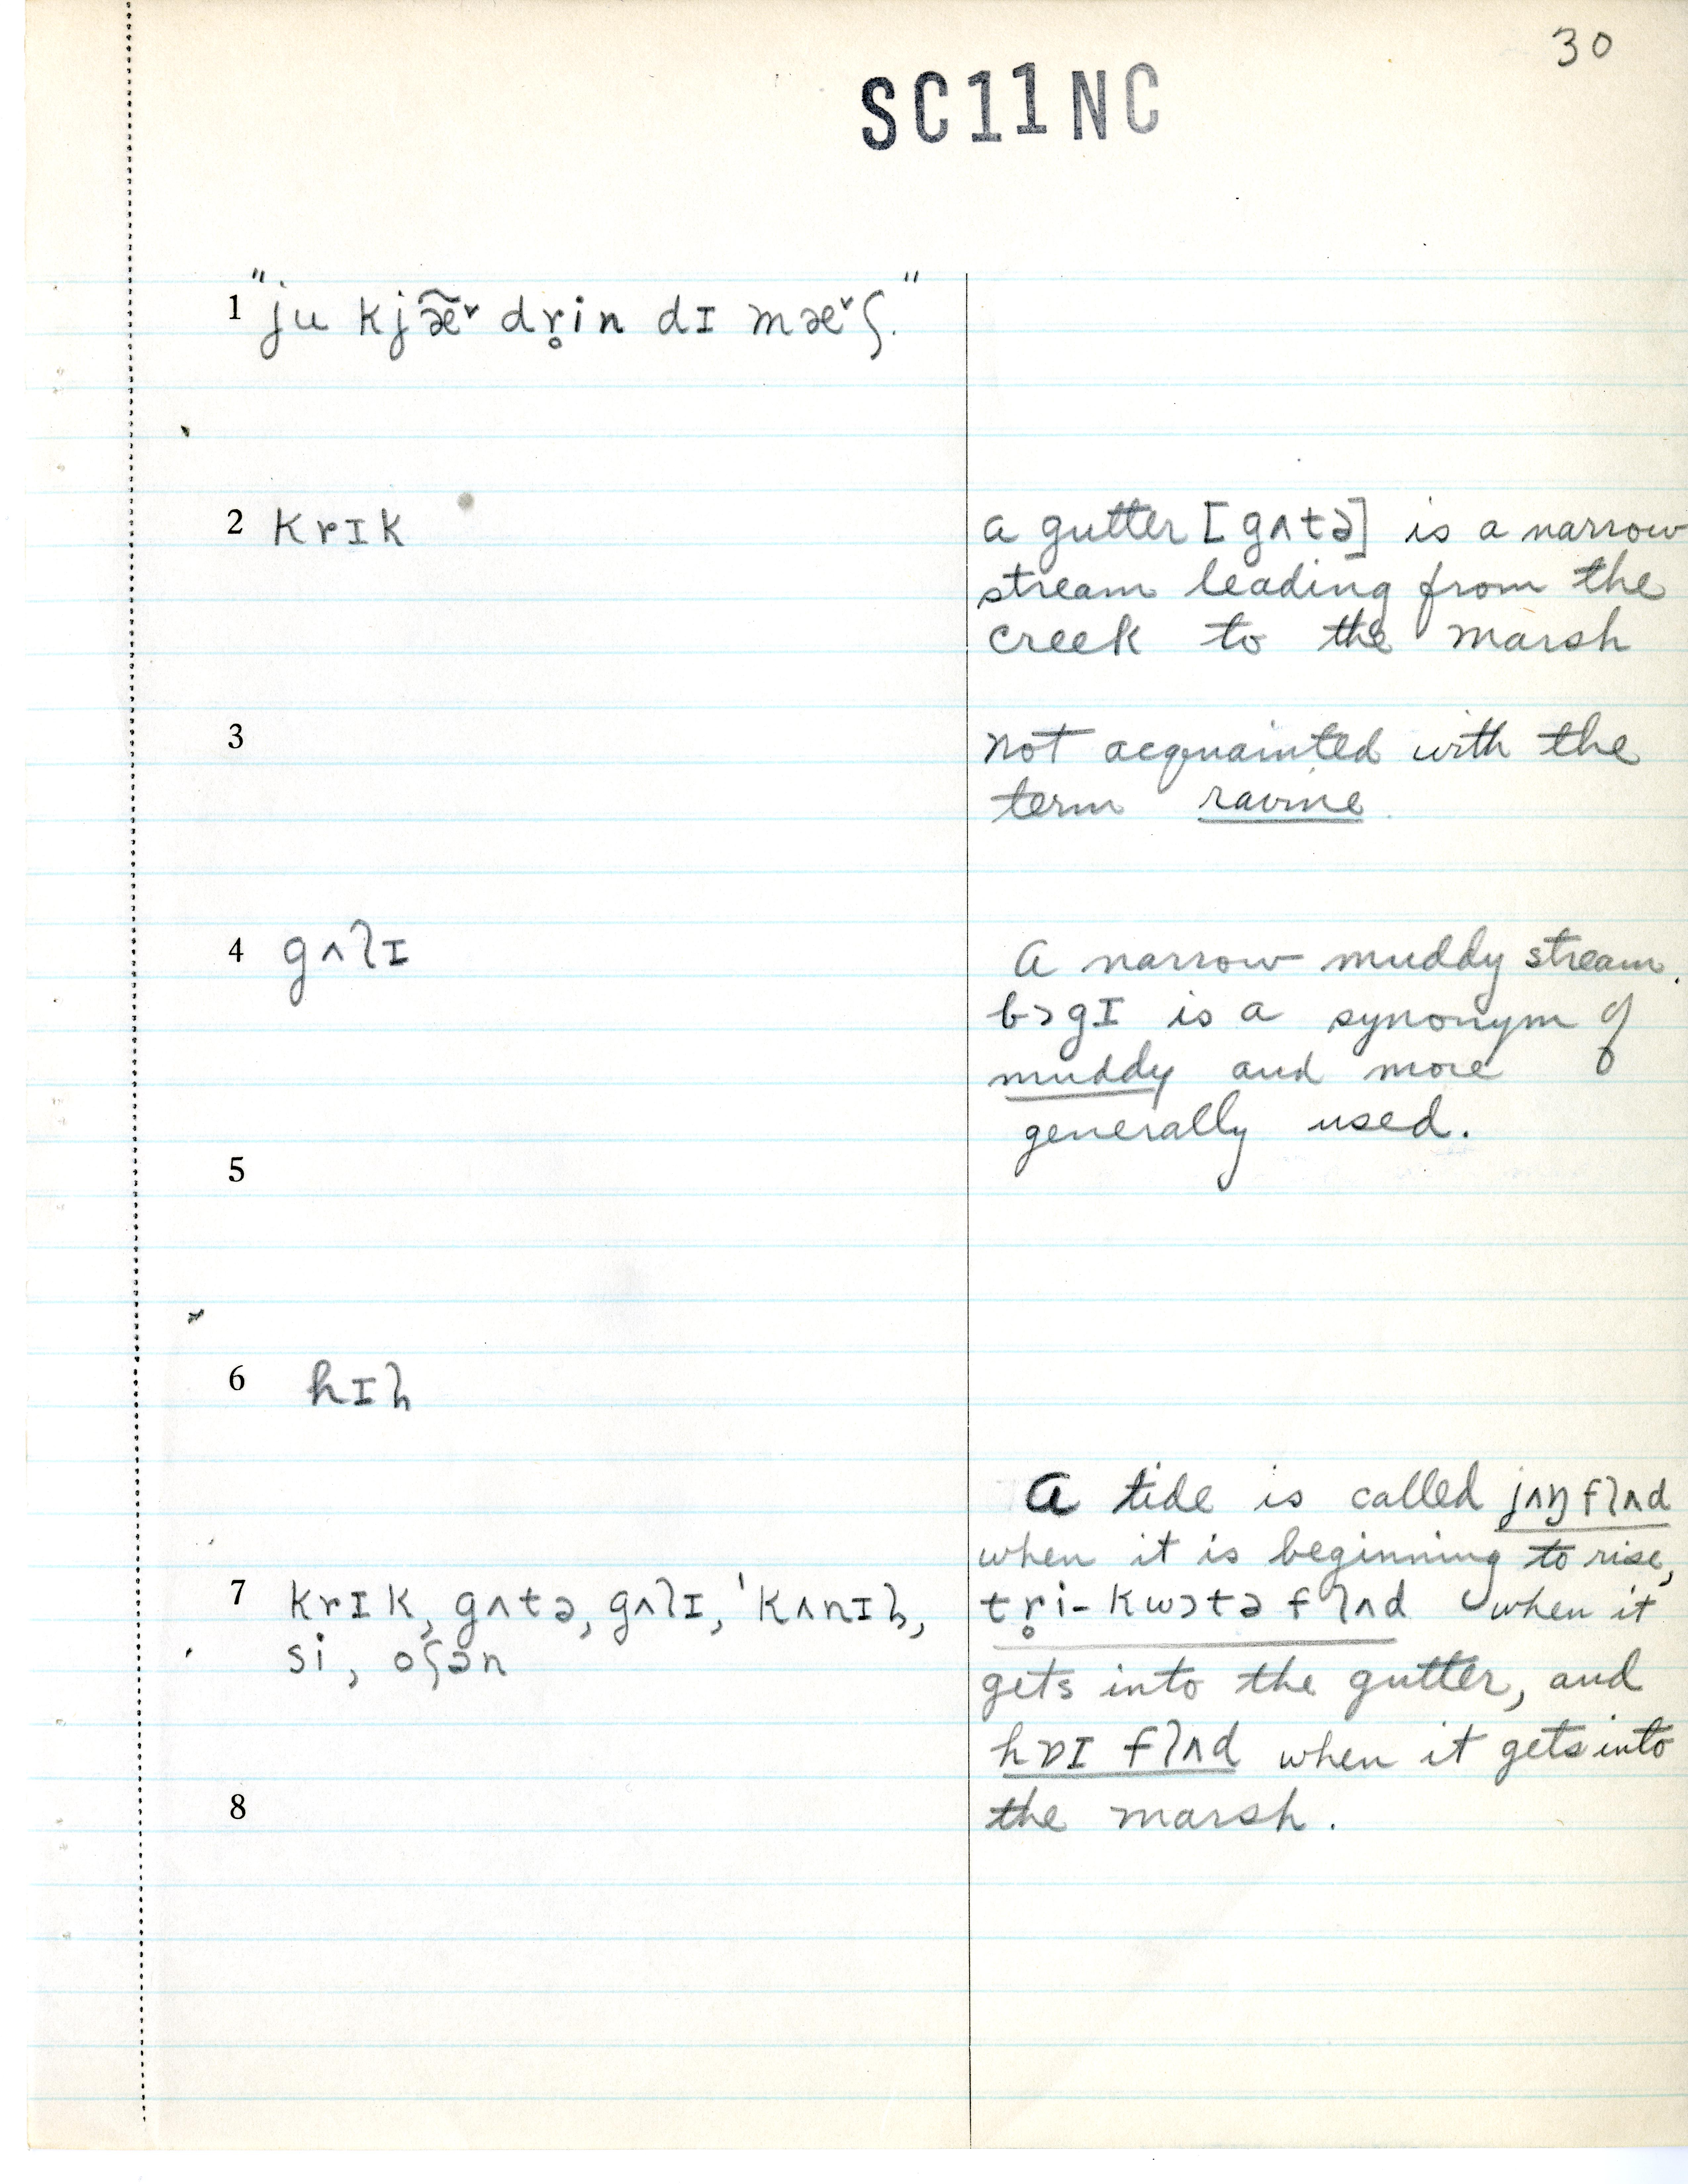 30
SC11NC
1 "ju kjæ̃˅ dr̥in dɪ mæ˅ʃ."
2 krɪk
a gutter [gʌtə] is a narrow
stream leading from the
creek to the marsh
3
not acquainted with the
term ravine.
4 gʌlɪ
A narrow muddy stream.
bɔgɪ is a synonym of
muddy and more
generally used.
5
6 hɪl
7 krɪk, gʌtə, gʌlɪ, ˈkʌnɪl,
si, oʃən
A tide is called jʌŋ flʌd
when it is beginning to rise,
tr̥i-kwɔtə flʌd when it
gets into the gutter, and
hɒɪ flʌd when it gets into
the marsh.
8